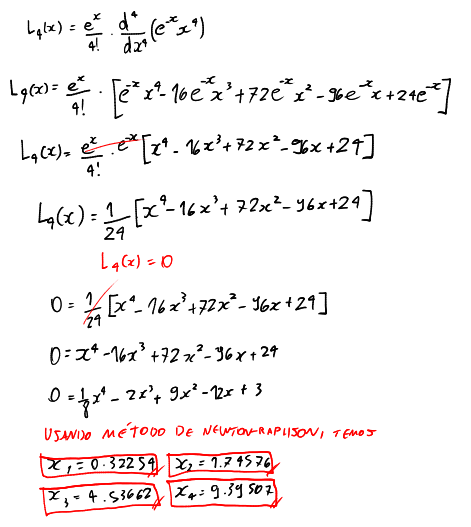 L₄(x) = e^x/4! · d⁴/dx⁴ (e^-x x⁴)
L₄(x) = e^x/4! · [e^-x x⁴ - 16e^-x x³ + 72e^-x x² - 96e^-x x + 24e^-x]
L₄(x) = e^x/4! · e^-x [x⁴ - 16x³ + 72x² - 96x + 24]
L₄(x) = 1/24 [x⁴ - 16x³ + 72x² - 96x + 24]
L₄(x) = 0
0 = 1/24 [x⁴ - 16x³ + 72x² - 96x + 24]
0 = x⁴ - 16x³ + 72x² - 96x + 24
0 = 1/8 x⁴ - 2x³ + 9x² - 12x + 3
USANDO MÉTODO DE NEWTON-RAPHSON, TEMOS
x₁ = 0.32254 x₂ = 1.74576
x₃ = 4.53662 x₄ = 9.39507